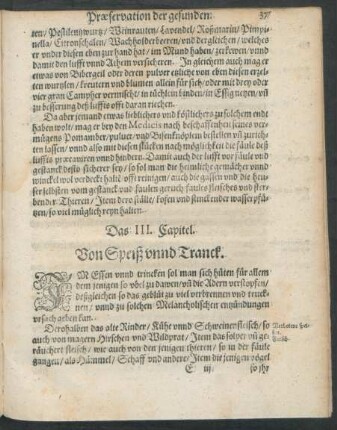 Præservation der gesunden.
ten/ Pestilentzwurtz/ Weinrauten/ Lavendel/ Roßmarin/ Pimpi-
nella/ Citronschalen/ Wachholderberren/ vnd dergleichen/ welches
er vnder diesen eben zur hand hat/ im Mund haben/ zerkewen/ vnnd
vnd damit den lufft vnnd Athem versicheren. In gleichem auch mag er
etwas von Bibergeil oder deren pulver etzliche von eben diesen erzel-
ten wurtzlen/ kreutern vnd blumen allein für sich/ oder mit drey oder
vier gran Campher vermischt/ in tüchlein binden/ in Essig netzen/ vñ
zu besserung deß luffts offt daran riechen.
Da aber jemand etwas lieblichers vnd köstlichers zu solchem endt
haben wolt/ mag er bey den Medicis nach beschaffenheit seines ver-
mügens Pomamber/ pulver/ vnd Bisenknöpflein bestellen vñ zurich-
ten lassen/ vnnd also mit diesen stücken nach möglichkeit die fäule deß
luffts præcaviren vnnd hindern. Damit auch der lufft vor fäule vnd
gestanck desto sicherer sey/ so sol man die heimliche gemächer vnnd
winckel wol verdeckt halten/ offt reinigen/ auch die gassen vnd die heu-
ser selbsten vom gestanck vnd faulen geruch faules fleisches vnd ster-
bender Thieren/ Item dere ställe/ kosen vnd stinckender wasserpfü-
tzen/ so viel müglich reyn halten.
Das III. Capitel.
Von Speiß vnnd Tranck.
IM Essen vnnd trincken sol man sich hüten für allem
dem jenigen so vbel zu dawen/ vñ die Adern verstopfen/
deßgleichen so das geblüt zu viel verbrennen vnd truck-
nen/ vnnd zu solchen Melancholischen entzündungen
vrsach geben kan.
Derohalben das alte Rinder/ Kühe vnnd Schweinenfleisch/ so
auch von magern Hirschen vnd Wildprät/ Item das solper vñ ge-
räuchert fleisch/ wie auch von den jenigen thieren/ so in der fäule
gangen/ als Hämmel/ Schaff vnd andere/ Item die jenigen vögel
E iij so jhr